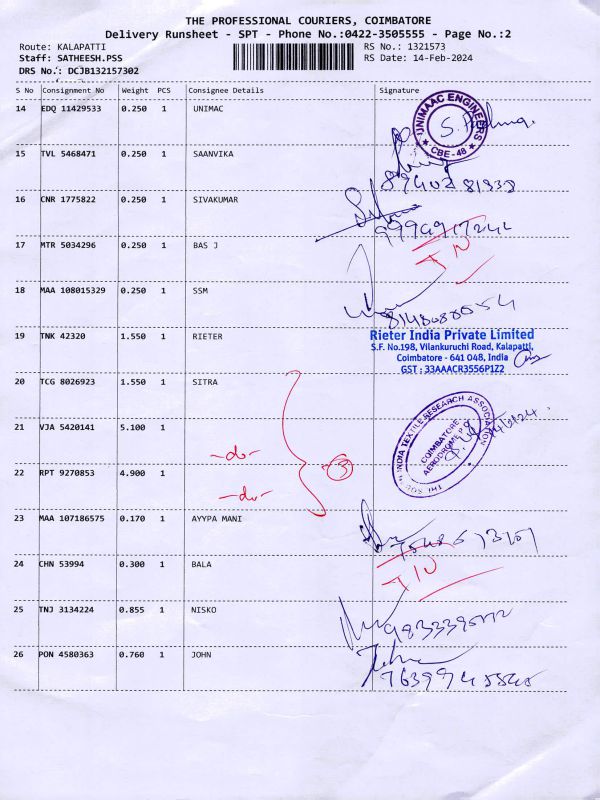 THE PROFESSIONAL COURIERS, COIMBATORE
Delivery Runsheet - SPT - Phone No.:0422-3505555 - Page No.:2
Route: KALAPATTI RS No.: 1321573
Staff: SATHEESH.PSS RS Date: 14-Feb-2024
DRS No.: DCJB132157302
S No Consignment No Weight PCS Consignee Details Signature
14 EDQ 11429533 0.250 1 UNIMAC
UNIMAAC ENGINEERS
CBE-48
15 TVL 5468471 0.250 1 SAANVIKA
16 CNR 1775822 0.250 1 SIVAKUMAR
17 MTR 5034296 0.250 1 BAS J
18 MAA 108015329 0.250 1 SSM
19 TNK 42320 1.550 1 RIETER
Rieter India Private Limited
S.F. No.198, Vilankuruchi Road, Kalapatti,
Coimbatore - 641 048, India
GST : 33AAACR3556P1Z2
20 TCG 8026923 1.550 1 SITRA
INDIA TEXTILE RESEARCH ASSOCIATION
COIMBATORE
AERODROME P.O.
21 VJA 5420141 5.100 1 -do-
22 RPT 9270853 4.900 1 -do-
3
23 MAA 107186575 0.170 1 AYYPA MANI
24 CHN 53994 0.300 1 BALA
25 TNJ 3134224 0.855 1 NISKO
26 PON 4580363 0.760 1 JOHN